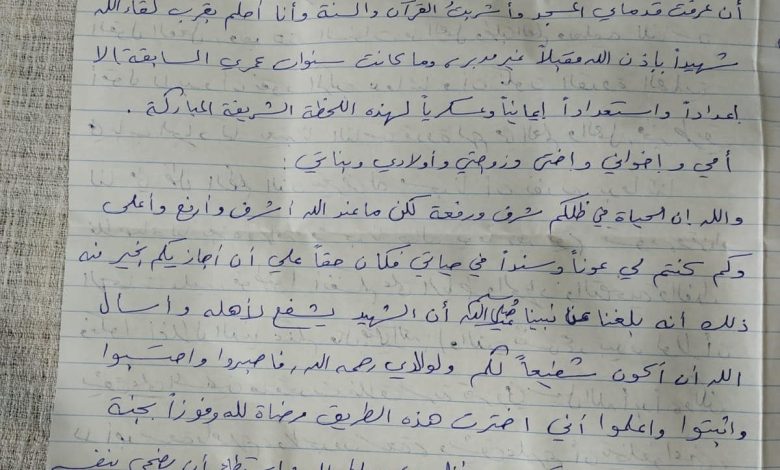 أن عرفت قدماي المسجد وأشربت القرآن والسنة وأنا أحلم بقرب لقاء الله
شهيداً بإذن الله مقبلاً غير مدبر، وما كانت سنوات عمري السابقة إلا
إعداداً واستعداداً إيمانياً وعسكرياً لهذه اللحظة الشريفة المباركة .
أمي و إخواني و اختي وزوجتي وأولادي وبناتي :
والله إن الحياة في ظلكم شرف ورفعة لكن ما عند الله أشرف وأرفع وأعلى
وكم كنتم لي عوناً وسنداً في حياتي فكان حقاً علي أن أجازيكم الخير ومنه
ذلك أنه بلغنا عن نبينا صلى الله عليه وسلم أن الشهيد يشفع لأهله وأسال
الله أن أكون شفيعاً لكم ولوالدي رحمه الله, فاصبروا واحتسبوا
واثبتوا واعلموا أني اخترت هذه الطريق مرضاة لله وفوزاً بجنة
أن يضحي بنفسه